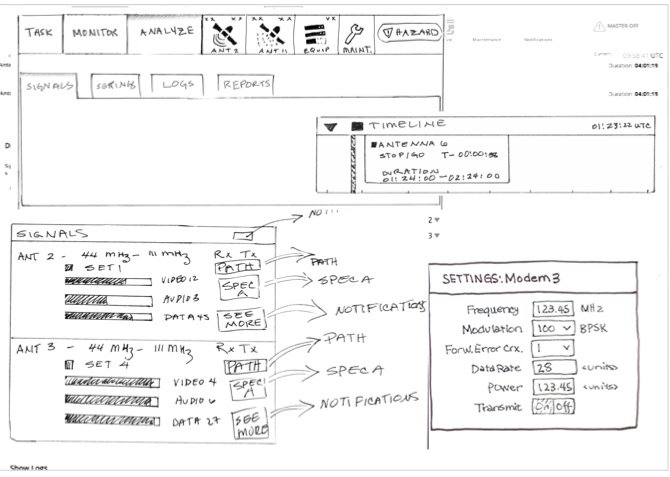 TASK
MONITOR
ANALYZE
XX XX XX VX
ANT 2
ANT 11
EQUIP
MAINT.
HAZARD
Maintenance
Notifications
MASTER OFF
UTC
Duration: 04:01:19
Duration: 04:01:19
SIGNALS
LOGS
REPORTS
TIMELINE
01:23:22 UTC
ANTENNA 6
STOP/GO T-00:00:
DURATION
01:24:00-02:24:00
SIGNALS
NO!!!
2
3
ANT 2 - 44 mHz - 111 mHz Rx Tx
SET 1 PATH
PATH
VIDEO 12
SPEC A
SPEC A
AUDIO 3
DATA 45
SEE MORE
NOTIFICATIONS
ANT 3 - 44 mHz - 111 mHz Rx Tx
SET 4 PATH
PATH
VIDEO 4
SPEC A
SPEC A
AUDIO 6
DATA 27
SEE MORE
NOTIFICATIONS
SETTINGS: Modem 3
Frequency 123.45 MHz
Modulation 100 BPSK
Forw. Error Crx. 1
Data Rate 28 <units>
Power 123.45 <units>
Transmit On Off
Show Logs